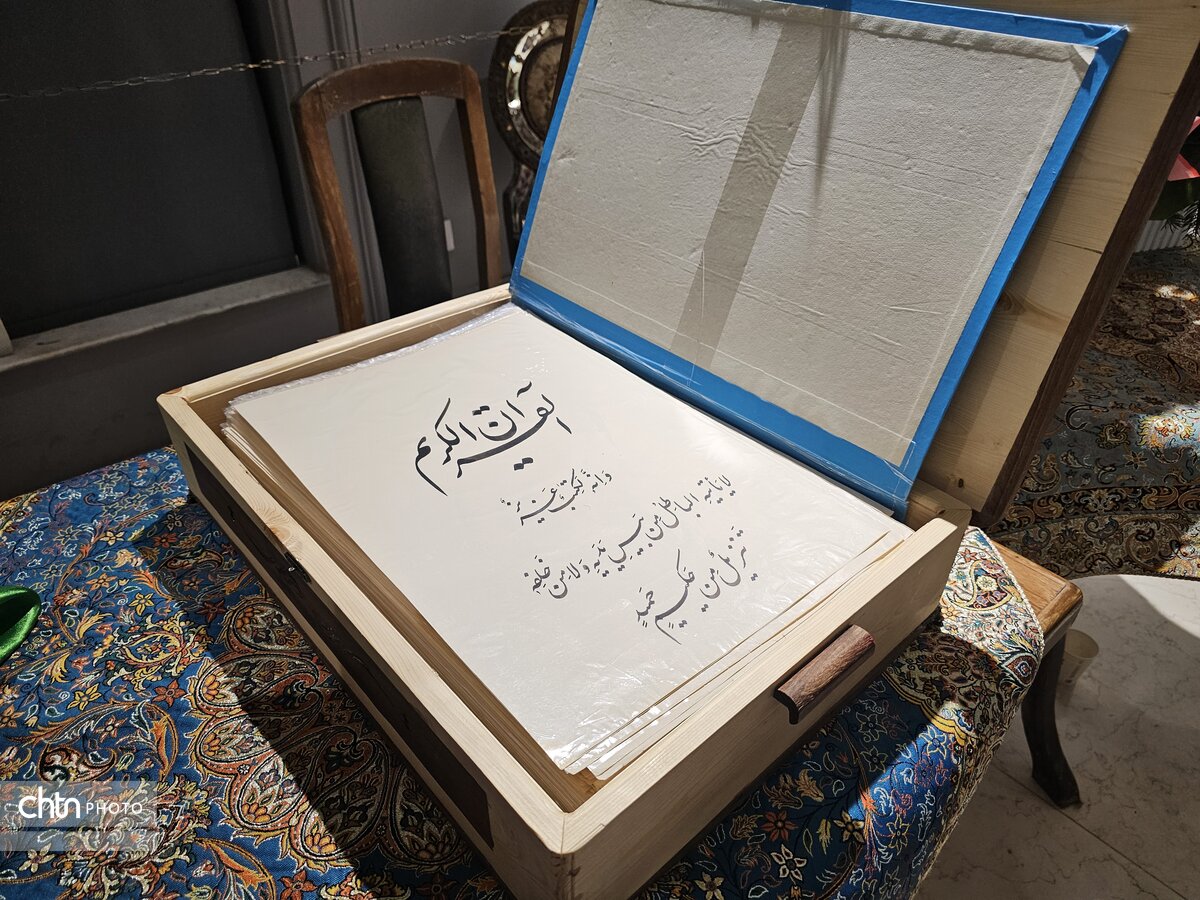 القرآن الكريم
وَإنَّهُ لَكِتَبٌ عَزِيزٌ
لا يَأتيهِ الباطِلُ مِن بَينِ يَدَيهِ وَلا مِن خَلفِه
تَنزيلٌ مِن حَكيمٍ حَميدٍ
chtn PHOTO